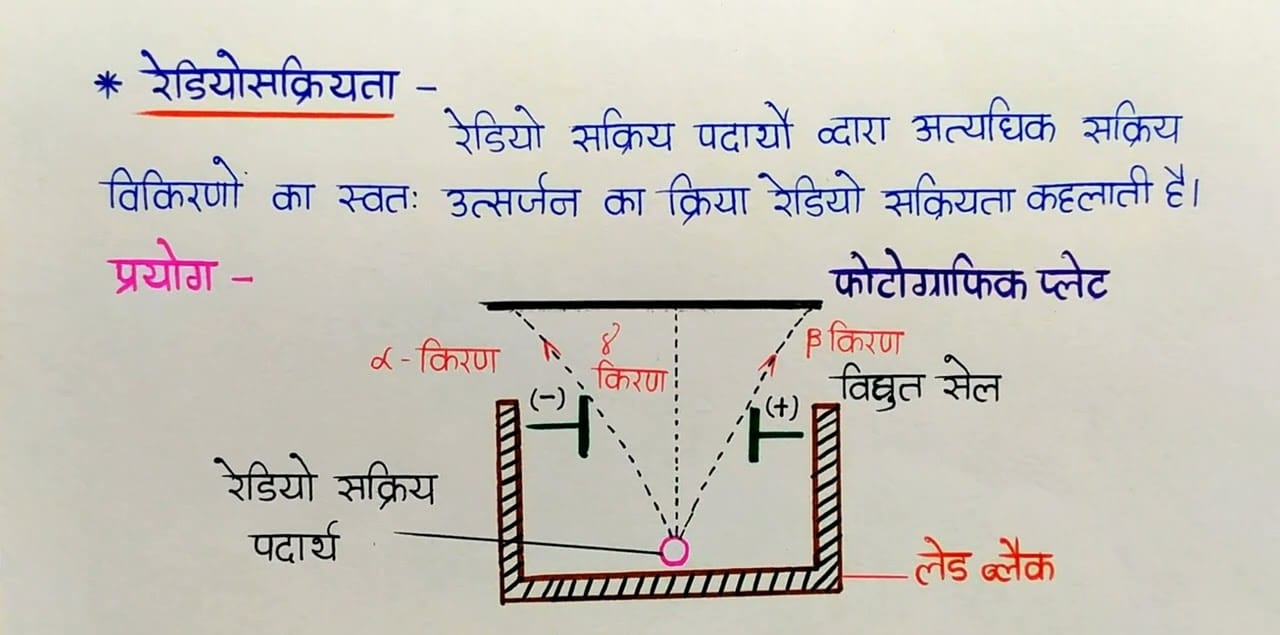 * रेडियोसक्रियता -
रेडियो सक्रिय पदार्यौ द्वारा अत्यधिक सक्रिय
विकिरणों का स्वतः उत्सर्जन का क्रिया रेडियो सक्रियता कहलाती है।
प्रयोग -
फोटोग्राफिक प्लेट
α - किरण
γ
किरण
β किरण
विद्युत सेल
(-)
(+)
रेडियो सक्रिय
पदार्थ
लेड ब्लैक